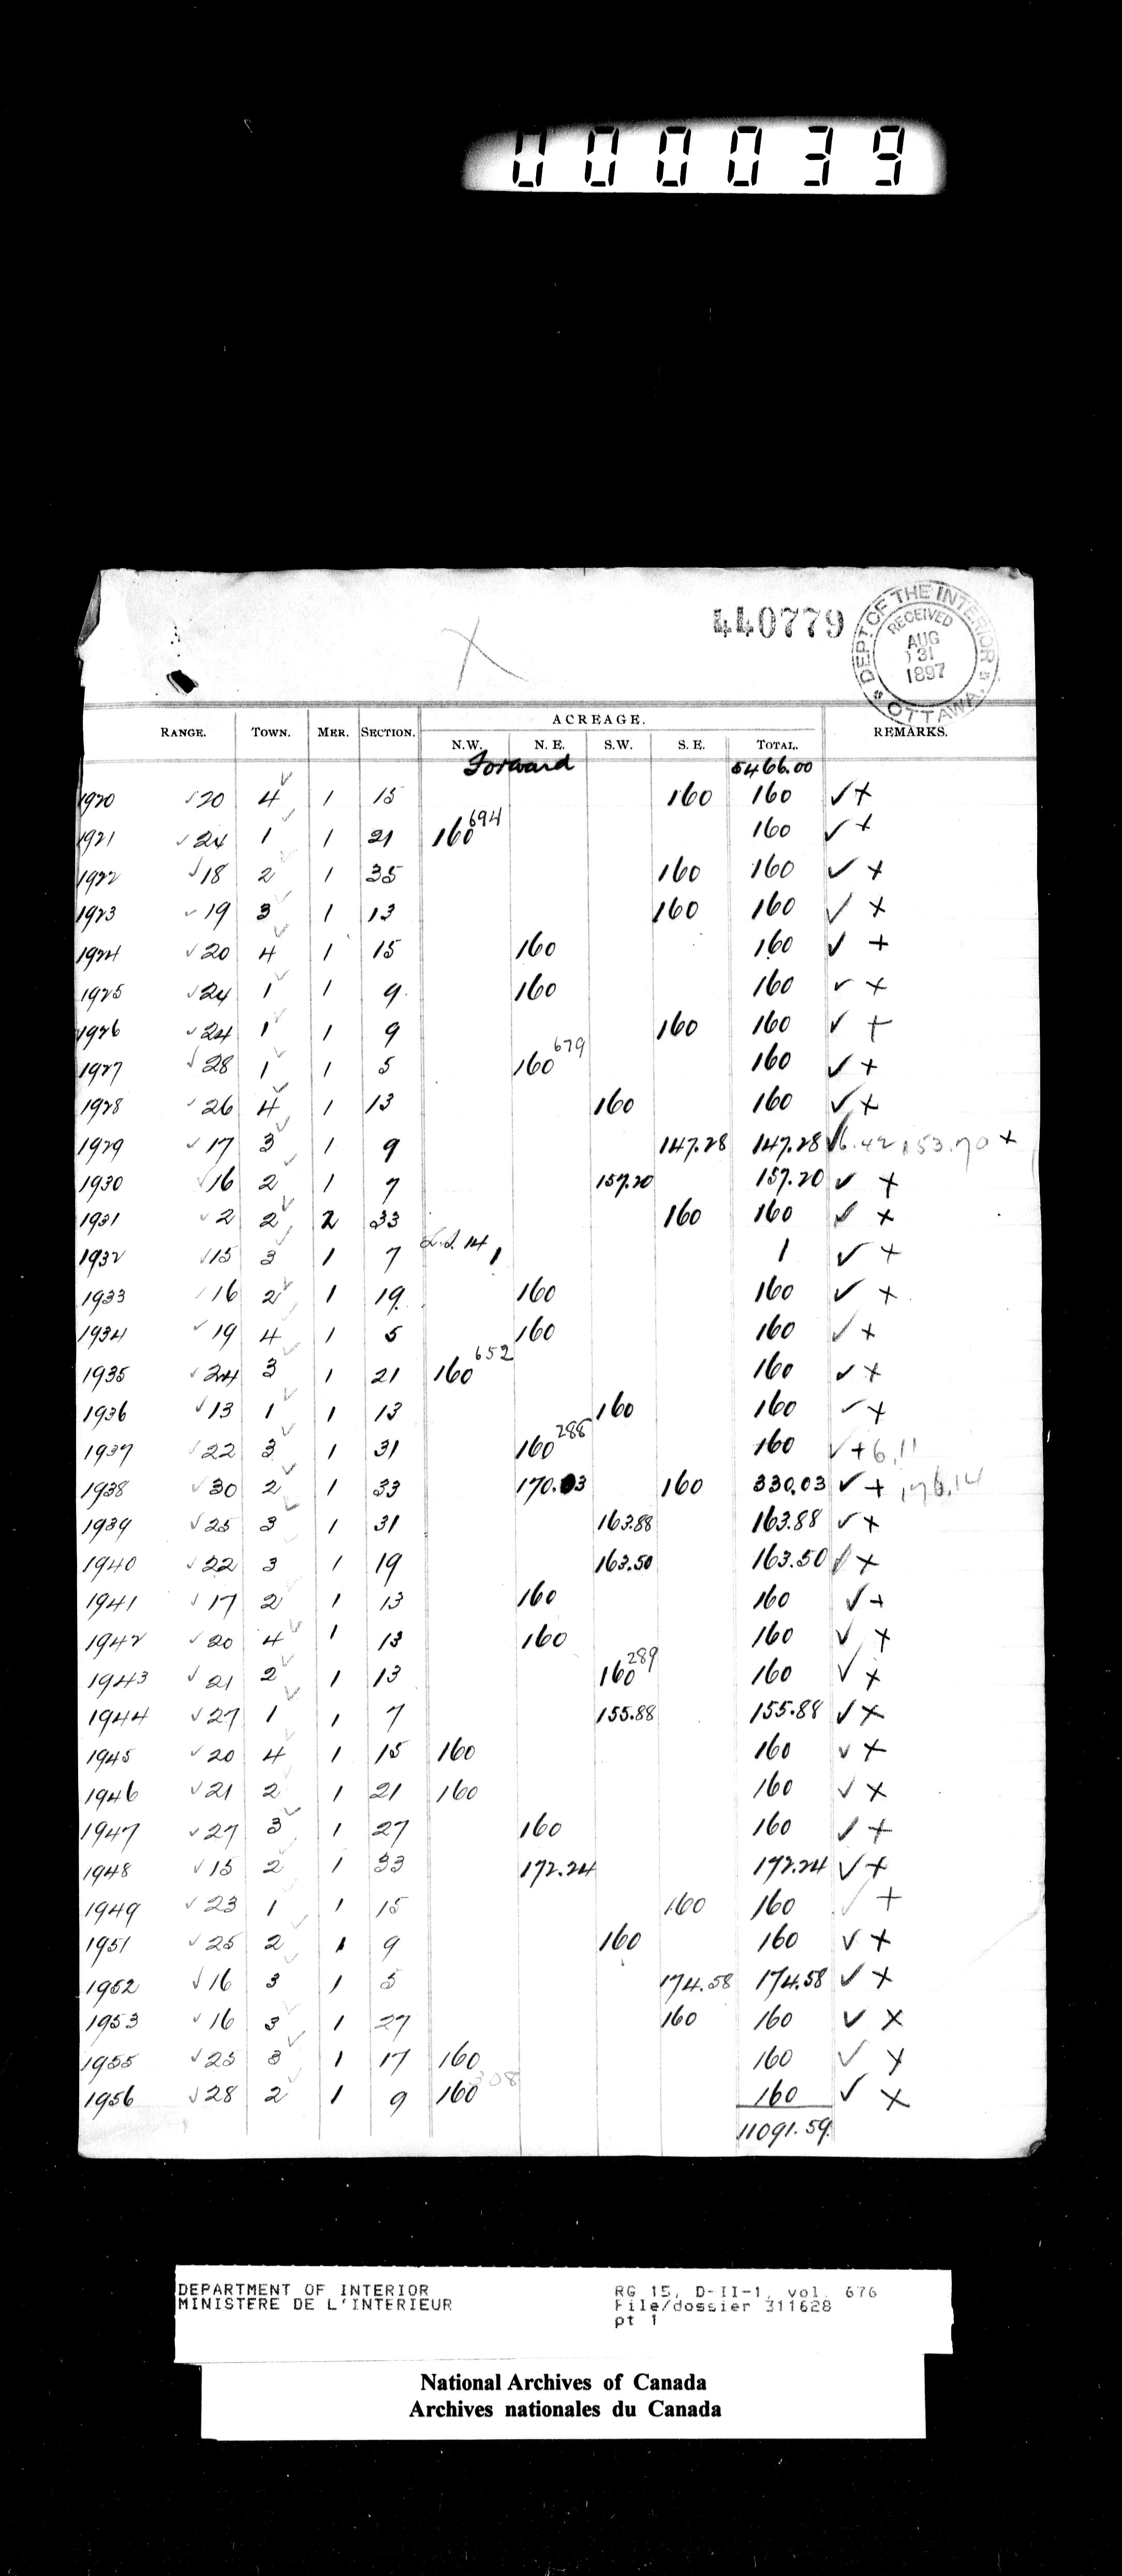 000039
440779
DEPT OF THE INTERIOR
RECEIVED
AUG 31
1897
OTTAWA.
ACREAGE.
RANGE. TOWN. MER. SECTION. N.W. N. E. S.W. S. E. TOTAL. REMARKS.
Forward 5466.00
1920 ✓20 4 1 15 160 160 ✓ +
1921 ✓24 1 1 21 160 694 160 ✓ +
1922 ✓18 2 1 35 160 160 ✓ +
1923 ✓19 3 1 13 160 160 ✓ x
1924 ✓20 4 1 15 160 160 ✓ +
1925 ✓24 1 1 9 160 160 ✓ x
1926 ✓24 1 1 9 160 160 ✓ +
1927 ✓28 1 1 5 160 679 160 ✓ +
1928 ✓26 4 1 13 160 160 ✓ x
1929 ✓17 3 1 9 147.28 147.28 ✓ 6.42 153.70 +
1930 ✓16 2 1 7 157.20 157.20 ✓ x
1931 ✓2 2 2 33 160 160 ✓ x
1932 ✓15 3 1 7 L.S. 14 1 1 ✓ +
1933 ✓16 2 1 19 160 160 ✓ x
1934 ✓19 4 1 5 160 160 ✓ +
1935 ✓24 3 1 21 160 652 160 ✓ +
1936 ✓13 1 1 13 160 160 ✓ x
1937 ✓22 3 1 31 160 288 160 ✓ + 6.11
1938 ✓30 2 1 33 170.03 160 330.03 ✓ + 176.14
1939 ✓25 3 1 31 163.88 163.88 ✓ x
1940 ✓22 3 1 19 163.50 163.50 ✓ x
1941 ✓17 2 1 13 160 160 ✓ +
1942 ✓20 4 1 13 160 160 ✓ x
1943 ✓21 2 1 13 160 289 160 ✓ x
1944 ✓27 1 1 7 155.88 155.88 ✓ x
1945 ✓20 4 1 15 160 160 ✓ x
1946 ✓21 2 1 21 160 160 ✓ x
1947 ✓27 3 1 27 160 160 ✓ +
1948 ✓15 2 1 33 172.24 172.24 ✓ +
1949 ✓23 1 1 15 160 160 ✓ +
1951 ✓25 2 1 9 160 160 ✓ x
1952 ✓16 3 1 5 174.58 174.58 ✓ x
1953 ✓16 3 1 27 160 160 ✓ x
1955 ✓25 3 1 17 160 160 ✓ x
1956 ✓28 2 1 9 160 308 160 ✓ x
11091.59
DEPARTMENT OF INTERIOR
MINISTERE DE L'INTERIEUR
RG 15, D-II-1, vol. 676
File/dossier 311628
pt 1
National Archives of Canada
Archives nationales du Canada